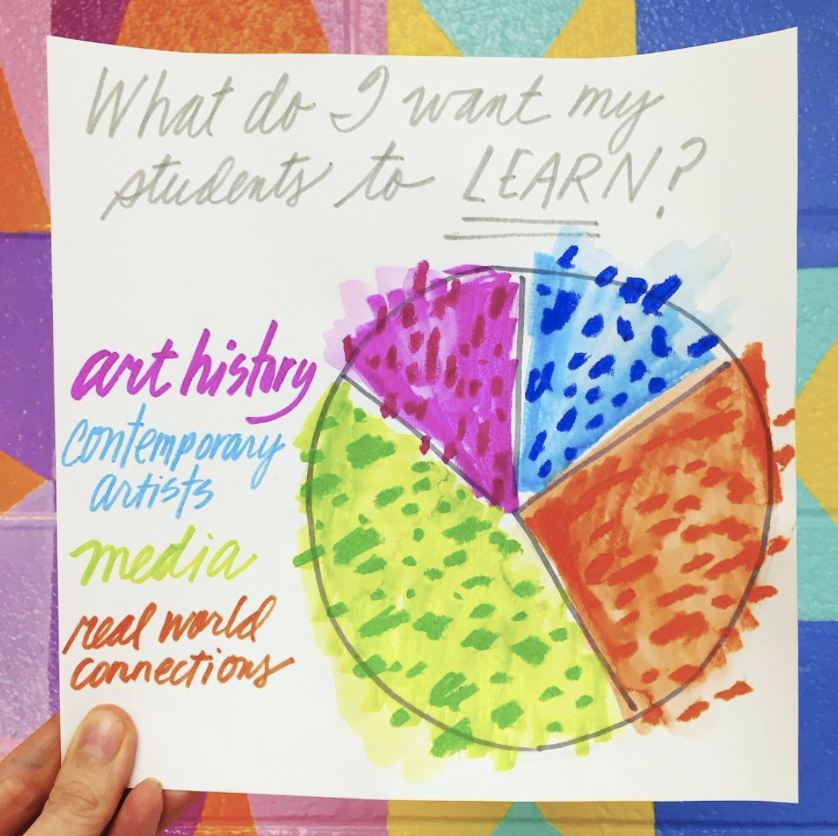 What do I want my
students to LEARN?
art history
contemporary
artists
media
real world
connections